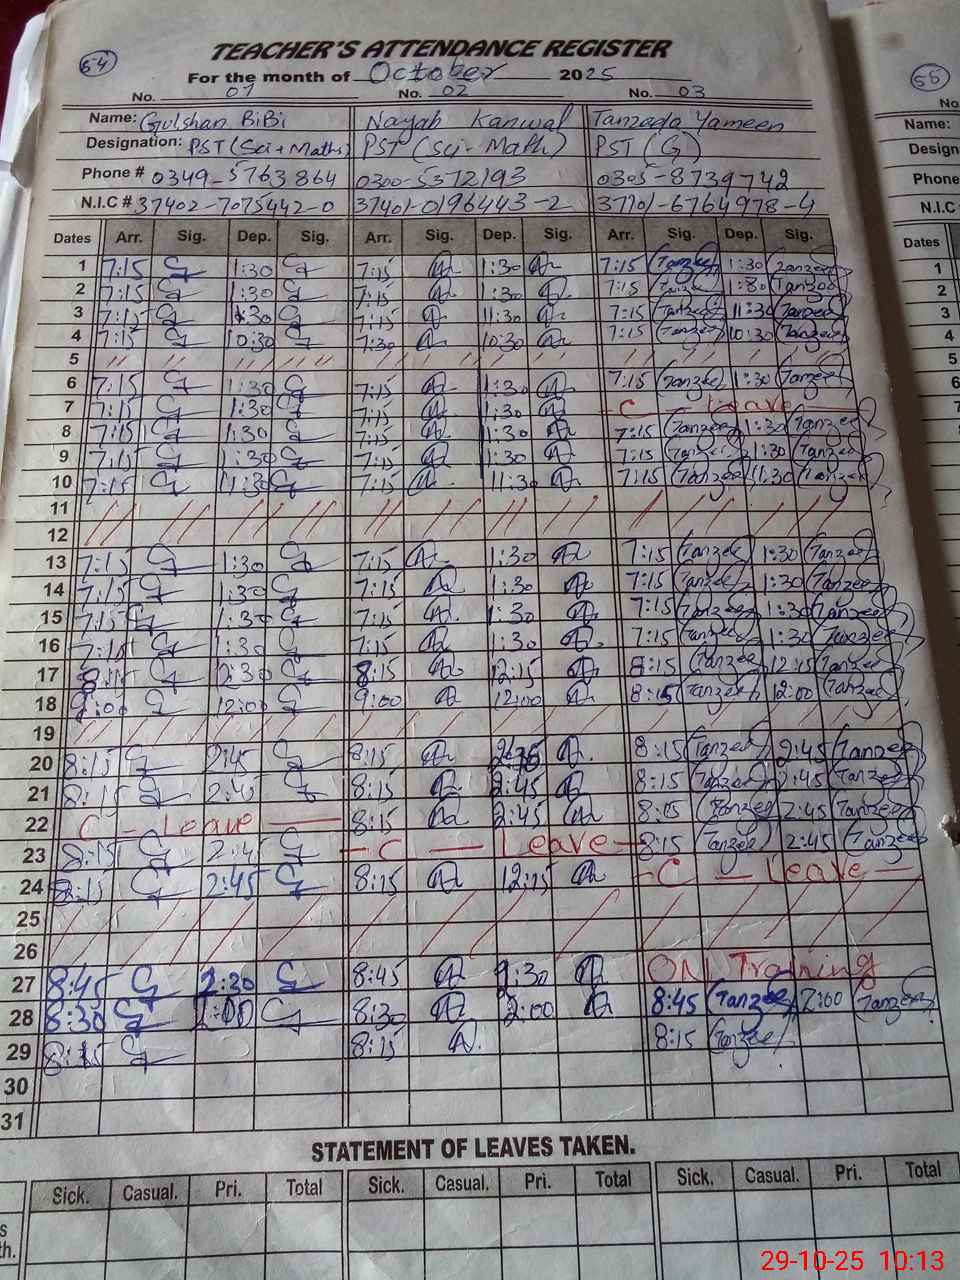 54
TEACHER'S ATTENDANCE REGISTER
For the month of October 2025
No. 01 No. 02 No. 03
Name: Gulshan BiBi Nayab Kanwal Tanzeda Yameen
Designation: PST (Sci+Maths) PST (Sci-Math) PST (G)
Phone # 0349-5763864 0300-5372193 0305-8739742
N.I.C # 37402-7075442-0 37401-0196443-2 37701-6764978-4
Dates Arr. Sig. Dep. Sig. Arr. Sig. Dep. Sig. Arr. Sig. Dep. Sig.
1 7:15 1:30 7:15 1:30 7:15 Tanzee 1:30 Tanzee
2 7:15 1:30 7:15 1:30 7:15 1:30 Tanzee
3 7:15 1:30 7:15 11:30 7:15 Tanzee 11:30 Tanzee
4 7:15 10:30 7:30 10:30 7:15 Tanzee 10:30 Tanzee
5
6 7:15 1:30 7:15 1:30 7:15 Tanzee 1:30 Tanzee
7 7:15 1:30 7:15 1:30 C - Leave
8 7:15 1:30 7:15 1:30 7:15 Tanzee 1:30 Tanzee
9 7:15 1:30 7:15 1:30 7:15 Tanzee 1:30 Tanzee
10 7:15 11:30 7:15 11:30 7:15 Tanzee 11:30 Tanzee
11
12
13 7:15 1:30 7:15 1:30 7:15 Tanzee 1:30 Tanzee
14 7:15 1:30 7:15 1:30 7:15 Tanzee 1:30 Tanzee
15 7:15 1:30 7:15 1:30 7:15 Tanzee 1:30 Tanzee
16 7:15 1:30 7:15 1:30 7:15 Tanzee 1:30 Tanzee
17 8:15 12:30 8:15 12:15 8:15 Tanzee 12:15 Tanzee
18 9:00 12:00 9:00 12:00 8:15 Tanzee 12:00 Tanzee
19
20 8:15 2:45 8:15 8:15 Tanzee 2:45 Tanzee
21 8:15 2:45 8:15 2:45 8:15 Tanzee 2:45 Tanzee
22 C - Leave 8:15 2:45 8:15 Tanzee 2:45 Tanzee
23 8:15 2:45 C - Leave 8:15 Tanzee 2:45 Tanzee
24 8:15 2:45 8:15 12:15 C - Leave
25
26
27 8:45 2:30 8:45 2:30 ON Training
28 8:30 8:30 2:00 8:45 Tanzee 2:00 Tanzee
29 8:15 8:15 8:15 Tanzee
30
31
STATEMENT OF LEAVES TAKEN.
Sick. Casual. Pri. Total Sick. Casual. Pri. Total Sick. Casual. Pri. Total
s
th.
55
No
Name:
Design
Phone
N.I.C
Dates
1
2
3
4
5
6
29-10-25 10:13